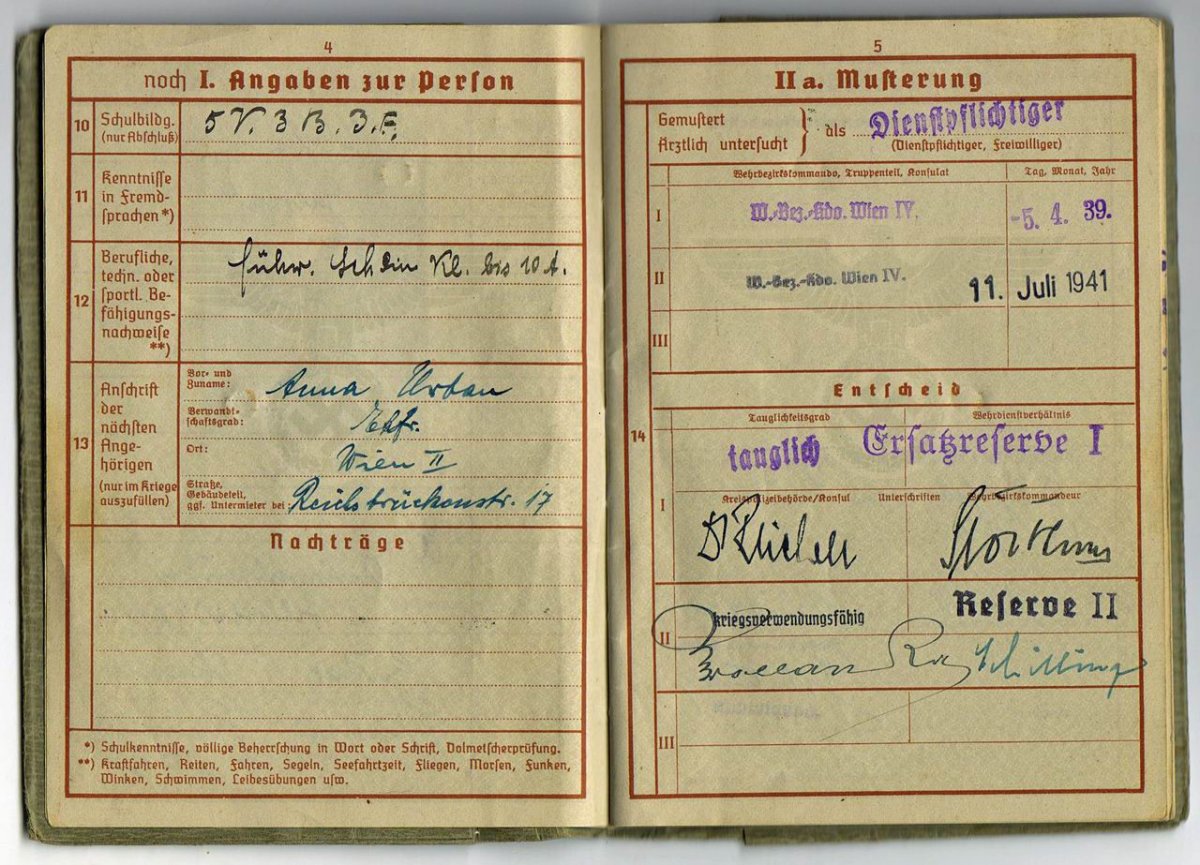 4
noch I. Angaben zur Person
10 Schulbildg. (nur Abschluß)
5 V. 3 B. 3. F.
11 Kenntnisse in Fremd-
sprachen *)
12 Berufliche,
techn. oder
sportl. Be-
fähigungs-
nachweise
**)
führ. Schein Kl. bis 10 A.
13 Anschrift
der
nächsten
Ange-
hörigen
(nur im Kriege
auszufüllen)
Vor- und
Zuname: Anna Urban
Verwandt-
schaftsgrad: Ehfr.
Ort: Wien II
Straße,
Gebäudeteil,
ggf. Untermieter bei: Reichsbrückenstr. 17
Nachträge
*) Schulkenntnisse, völlige Beherrschung in Wort oder Schrift, Dolmetscherprüfung.
**) Kraftfahren, Reiten, Fahren, Segeln, Seefahrtzeit, Fliegen, Morsen, Funken,
Winken, Schwimmen, Leibesübungen usw.
5
II a. Musterung
Gemustert
Ärztlich untersucht } als Dienstpflichtiger
(Dienstpflichtiger, Freiwilliger)
Wehrbezirkskommando, Truppenteil, Konsulat
Tag, Monat, Jahr
I W.-Bez.-Kdo. Wien IV. -5. 4. 39.
II W.-Bez.-Kdo. Wien IV. 11. Juli 1941
III
Entscheid
14
Tauglichkeitsgrad
Wehrdienstverhältnis
tauglich Ersatzreserve I
I
Kreispolizeibehörde/Konsul Unterschriften Wehrbezirkskommandeur
II kriegsverwendungsfähig Reserve II
Schilling
III